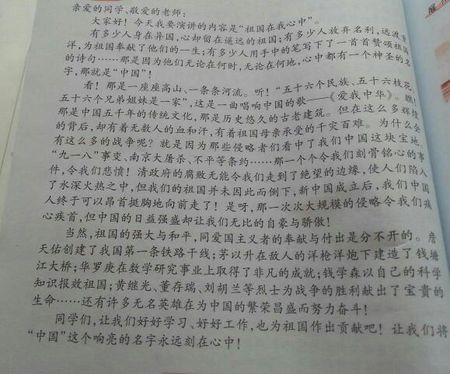 亲爱的同学、敬爱的老师:
大家好!今天我要演讲的内容是“祖国在我心中”。
有多少人身在异国,心却留在遥远的祖国;有多少人放弃名利,远渡重
洋,为祖国奉献了他们的一生;有多少人用手中的笔写下了一首首赞颂祖国
的诗句……那是因为他们无论在何时,无论在何地,心中都有一个神圣的名
字,那就是“中国”!
看!那是一座座高山、一条条河流。听!“五十六个民族、五十六枝花,
五十六个兄弟姐妹是一家”,这是一曲唱响中国的歌——《爱我中华》。瞧!
那是中国五千年的传统文化,那是历史悠久的古老建筑。但在这么多辉煌
的背后,却有着无数人的血和汗,有着祖国母亲承受的千灾百难。为什么会
有这么多的战争呢?就是因为那些侵略者们看中了我们中国这块宝地,
“九一八”事变、南京大屠杀、不平等条约……那一个个令我们刻骨铭心的事
件,令我们悲愤!清政府的腐败无能令我们走到了绝望的边缘,使人们陷入
了水深火热之中,但我们的祖国并未因此而倒下,新中国成立后,我们中国
人终于可以昂首挺胸地向前走了!是呀,那一次次大规模的侵略令我们痛
心疾首,但中国的日益强盛却让我们无比的自豪与骄傲!
当然,祖国的强大与和平,同爱国主义者的奉献与付出是分不开的。詹
天佑创建了我国第一条铁路干线;茅以升在敌人的洋枪洋炮下建造了钱塘
江大桥;华罗庚在数学研究事业上取得了非凡的成就;钱学森以自己的科学
知识报效祖国;黄继光、董存瑞、刘胡兰等烈士为战争的胜利献出了宝贵的
生命……还有许多无名英雄在为中国的繁荣昌盛而努力奋斗!
同学们,让我们好好学习、好好工作,也为祖国作出贡献吧!让我们将
“中国”这个响亮的名字永远刻在心中!